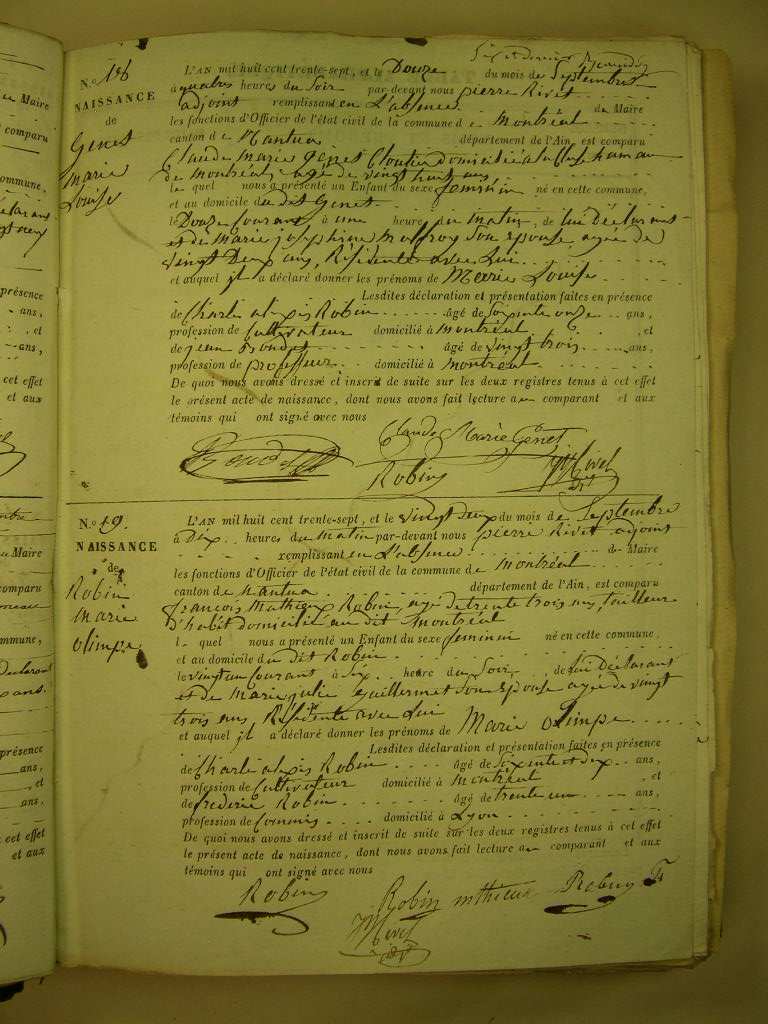 N.o 18
NAISSANCE
de
Genet
Marie
Louise
L'AN mil huit cent trente-sept, et le Douze du mois de Septembre
à quatre heures du Soir par devant nous pierre Rivet
adjoint remplissant en L'absence du Maire
les fonctions d'Officier de l'état civil de la commune de Montréal
canton de Nantua département de l'Ain, est comparu
Claude Marie Genet Cloutier domicilié à la
de Montréal, agé de vingt huit ans
le quel nous a présenté un Enfant du sexe feminin né en cette commune,
et au domicile du dit Genet
le Douze Courant à une heure du matin, de lui Déclarant
et de Marie josephine Molfroy Son Epouse, agée de
vingt Deux ans, Résidente avec Lui
et auquel il a déclaré donner les prénoms de Marie Louise
Lesdites déclaration et présentation faites en présence
de Charle alexis Robin âgé de Soixente onze ans,
profession de Cultivateur domicilié à Montréal , et
de jean Bondet âgé de vingt trois ans,
profession de professeur domicilié à Montréal
De quoi nous avons dressé et inscrit de suite sur les deux registres tenus à cet effet
le présent acte de naissance, dont nous avons fait lecture au comparant et aux
témoins qui ont signé avec nous
Claude Marie Genet
Bondet
Robin
Rivet
N.o 19.
NAISSANCE
de
Robin
Marie
olimpe
L'AN mil huit cent trente-sept, et le vingt deux du mois de Septembre
à Dix heures du matin par-devant nous pierre Rivet adjoint
remplissant en L'absence du Maire
les fonctions d'Officier de l'état civil de la commune de Montréal
canton de Nantua département de l'Ain, est comparu
françois Mathieu Robin, agé de trente trois ans, tailleur
d'habit domicilié au dit Montréal
l quel nous a présenté un Enfant du sexe feminin né en cette commune,
et au domicile du dit Robin
le vingt un Courant à Six heure du Soir, de lui Déclarant
et de Marie julie Guillermet Son Epouse agée de vingt
trois ans, Résidente avec Lui
et auquel il a déclaré donner les prénoms de Marie olimpe
Lesdites déclaration et présentation faites en présence
de Charle alexis Robin âgé de Soixente et dix ans,
profession de Cultivateur domicilié à Montréal , et
de frederic Robin âgé de trente un ans,
profession de Commis domicilié à Lyon
De quoi nous avons dressé et inscrit de suite sur les deux registres tenus à cet effet
le présent acte de naissance, dont nous avons fait lecture au comparant et aux
témoins qui ont signé avec nous
Robin
Robin mthieu Robin
Rivet